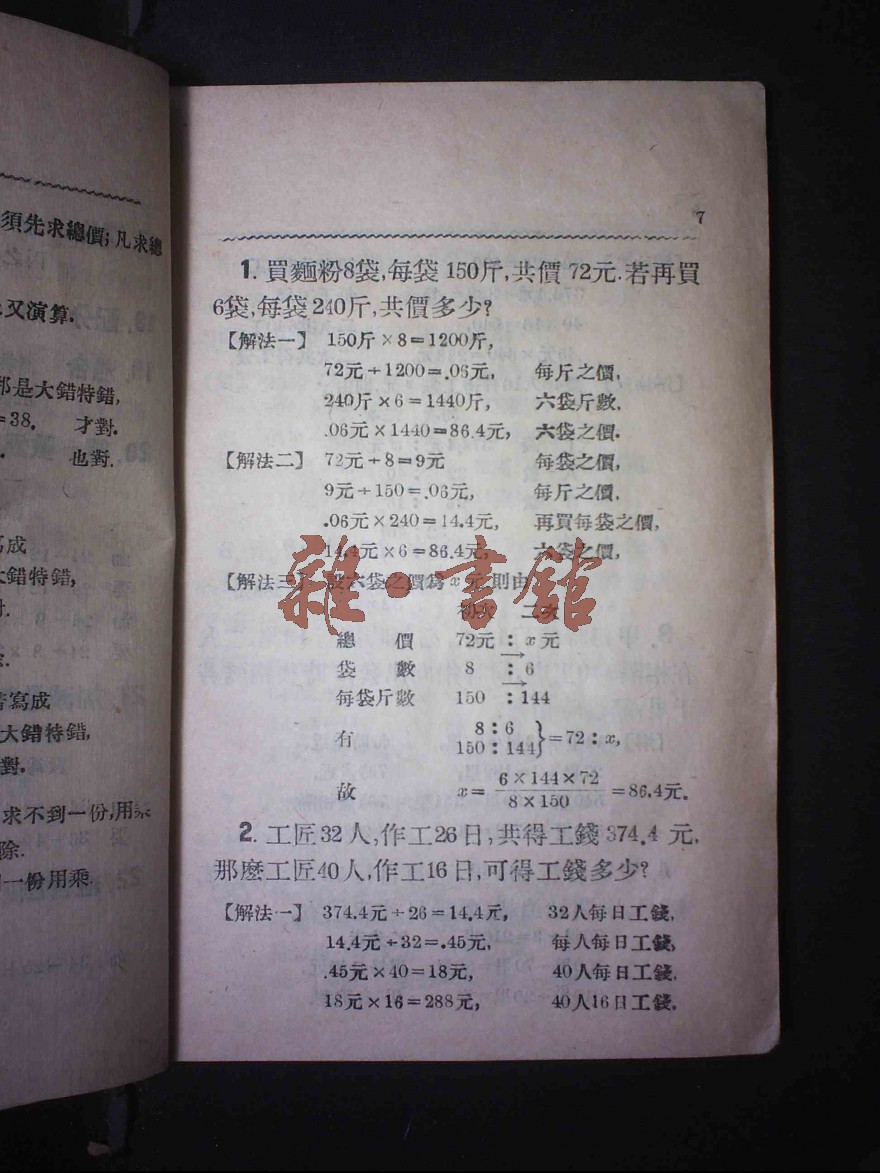 須先求總價;凡求總
又演算.
是大錯特錯,
=38. 才對.
也對.
寫成
大錯特錯,
寫成
大錯特錯,
對.
求不到一份,用
除.
一份用乘.
7
1. 買麵粉8袋,每袋 150斤,共價 72元.若再買
6袋,每袋240斤,共價多少?
【解法一】 150斤×8=1200斤,
72元÷1200=.06元, 每斤之價,
240斤×6=1440斤, 六袋斤數,
.06元×1440=86.4元, 六袋之價.
【解法二】 72元÷8=9元 每袋之價,
9元÷150=.06元, 每斤之價,
.06元×240=14.4元, 再買每袋之價,
14.4元×6=86.4元, 六袋之價,
【解法三】 設六袋之價爲x元,則由
初次 二次
總價 72元:x元
袋數 8 :6
每袋斤數 150 :144
有 8:6 150:144}=72:x,
故 x= 6×144×72 / 8×150 =86.4元.
2. 工匠32人,作工26日,共得工錢374.4元.
那麽工匠40人,作工16日,可得工錢多少?
【解法一】 374.4元÷26=14.4元, 32人每日工錢,
14.4元÷32=.45元, 每人每日工錢,
.45元×40=18元, 40人每日工錢,
18元×16=288元, 40人16日工錢.
雜·書館